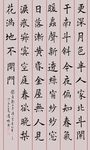 更深月色半人家北斗闌
干南斗斜今夜偏知春氣
暖蟲聲新透綠窗紗紗窗
日落漸黃昏金屋無人見
淚痕寂寞空庭春欲晚梨
花滿地不開門